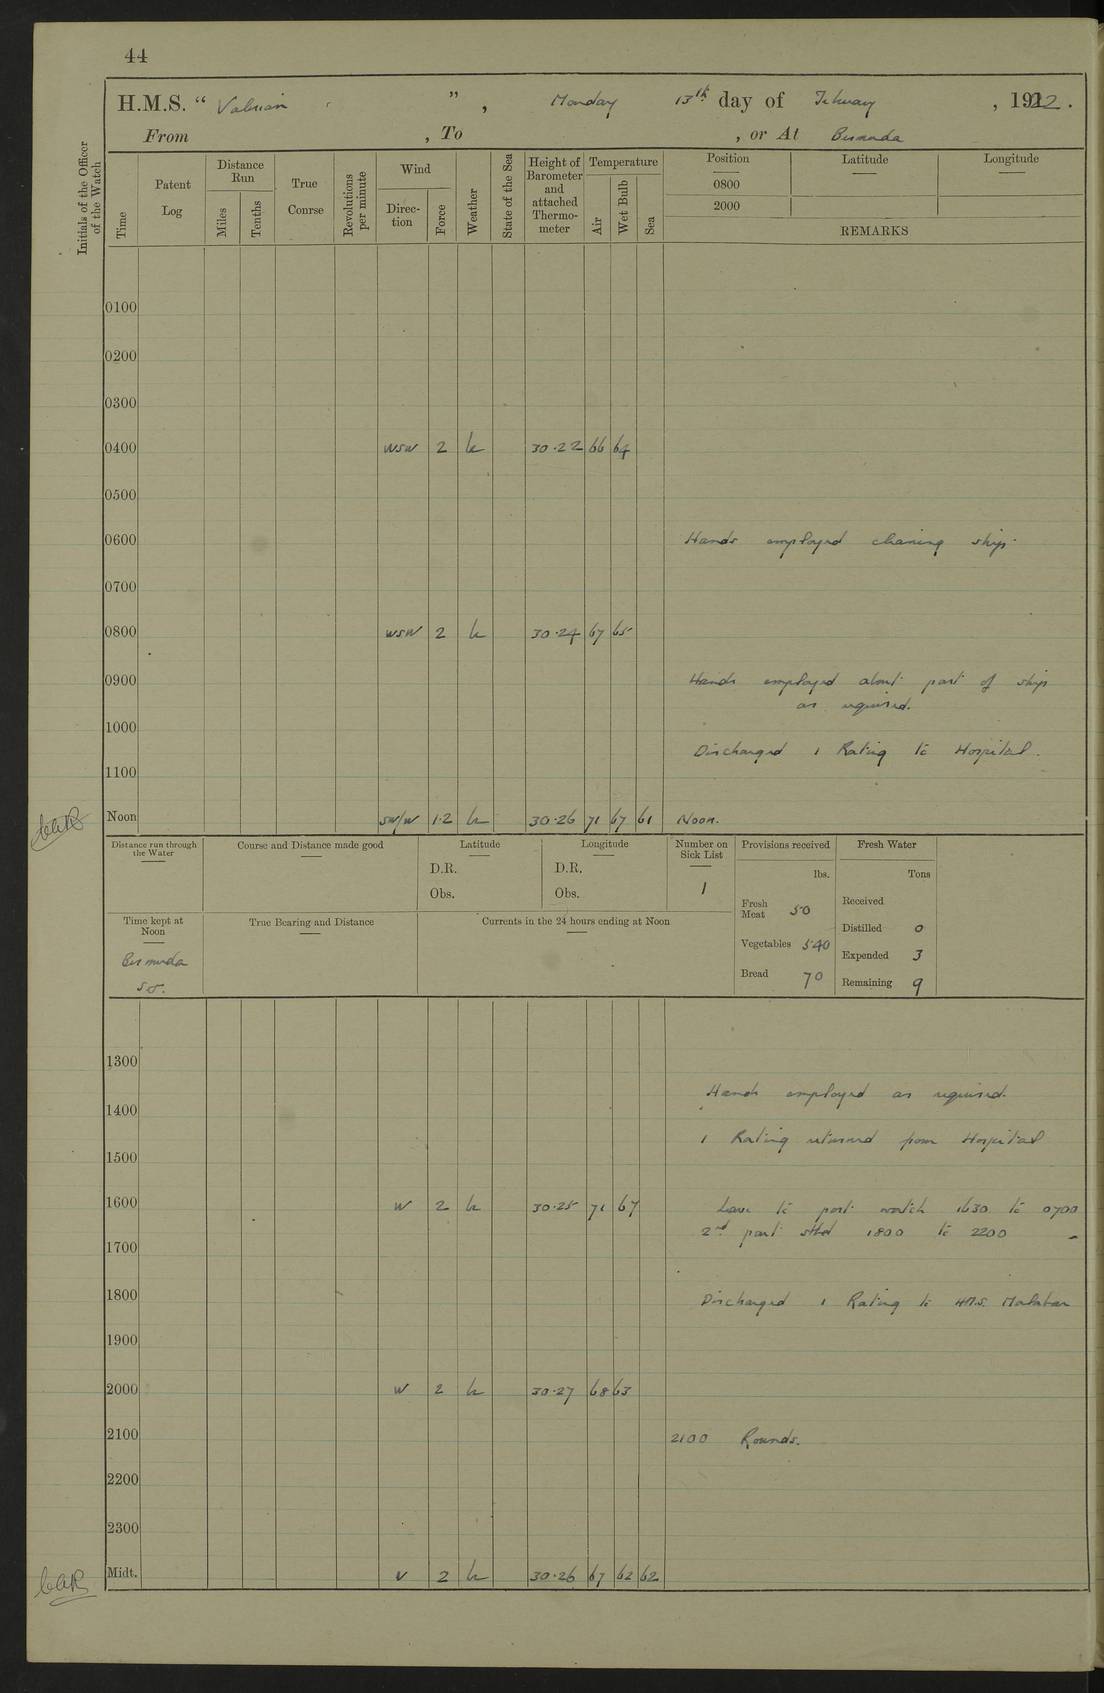 44
H.M.S. “ Valerian ” , Monday 13th day of February , 1922 .
From , To , or At Bermuda
Initials of the Officer of the Watch
Time
Patent Log
Distance Run
Miles
Tenths
True Course
Revolutions per minute
Wind
Direc-tion
Force
Weather
State of the Sea
Height of Barometer and attached Thermo-meter
Temperature
Air
Wet Bulb
Sea
Position Latitude Longitude
0800
2000
REMARKS
0100
0200
0300
0400 WSW 2 bc 30.22 66 64
0500
0600 Hands employed cleaning ship.
0700
0800 WSW 2 bc 30.24 67 65
0900 Hands employed about part of ship
as required.
1000
Discharged 1 Rating to Hospital.
1100
Noon SW/W 1.2 bc 30.26 71 67 61 Noon.
Distance run through the Water
Course and Distance made good
Latitude
D.R.
Obs.
Longitude
D.R.
Obs.
Number on Sick List
1
Provisions received
lbs.
Fresh Meat 50
Vegetables 540
Bread 70
Fresh Water
Tons
Received
Distilled 0
Expended 3
Remaining 9
Time kept at Noon
Bermuda
True Bearing and Distance
Currents in the 24 hours ending at Noon
1300
Hands employed as required.
1400
1 Rating returned from Hospital
1500
1600 W 2 bc 30.25 71 67 Leave to port watch 1630 to 0700
2nd part stbd 1800 to 2200
1700
1800 Discharged 1 Rating to HMS. Malabar
1900
2000 W 2 bc 30.27 68 63
2100 2100 Rounds.
2200
2300
Midt. 2 bc 30.26 67 62 62